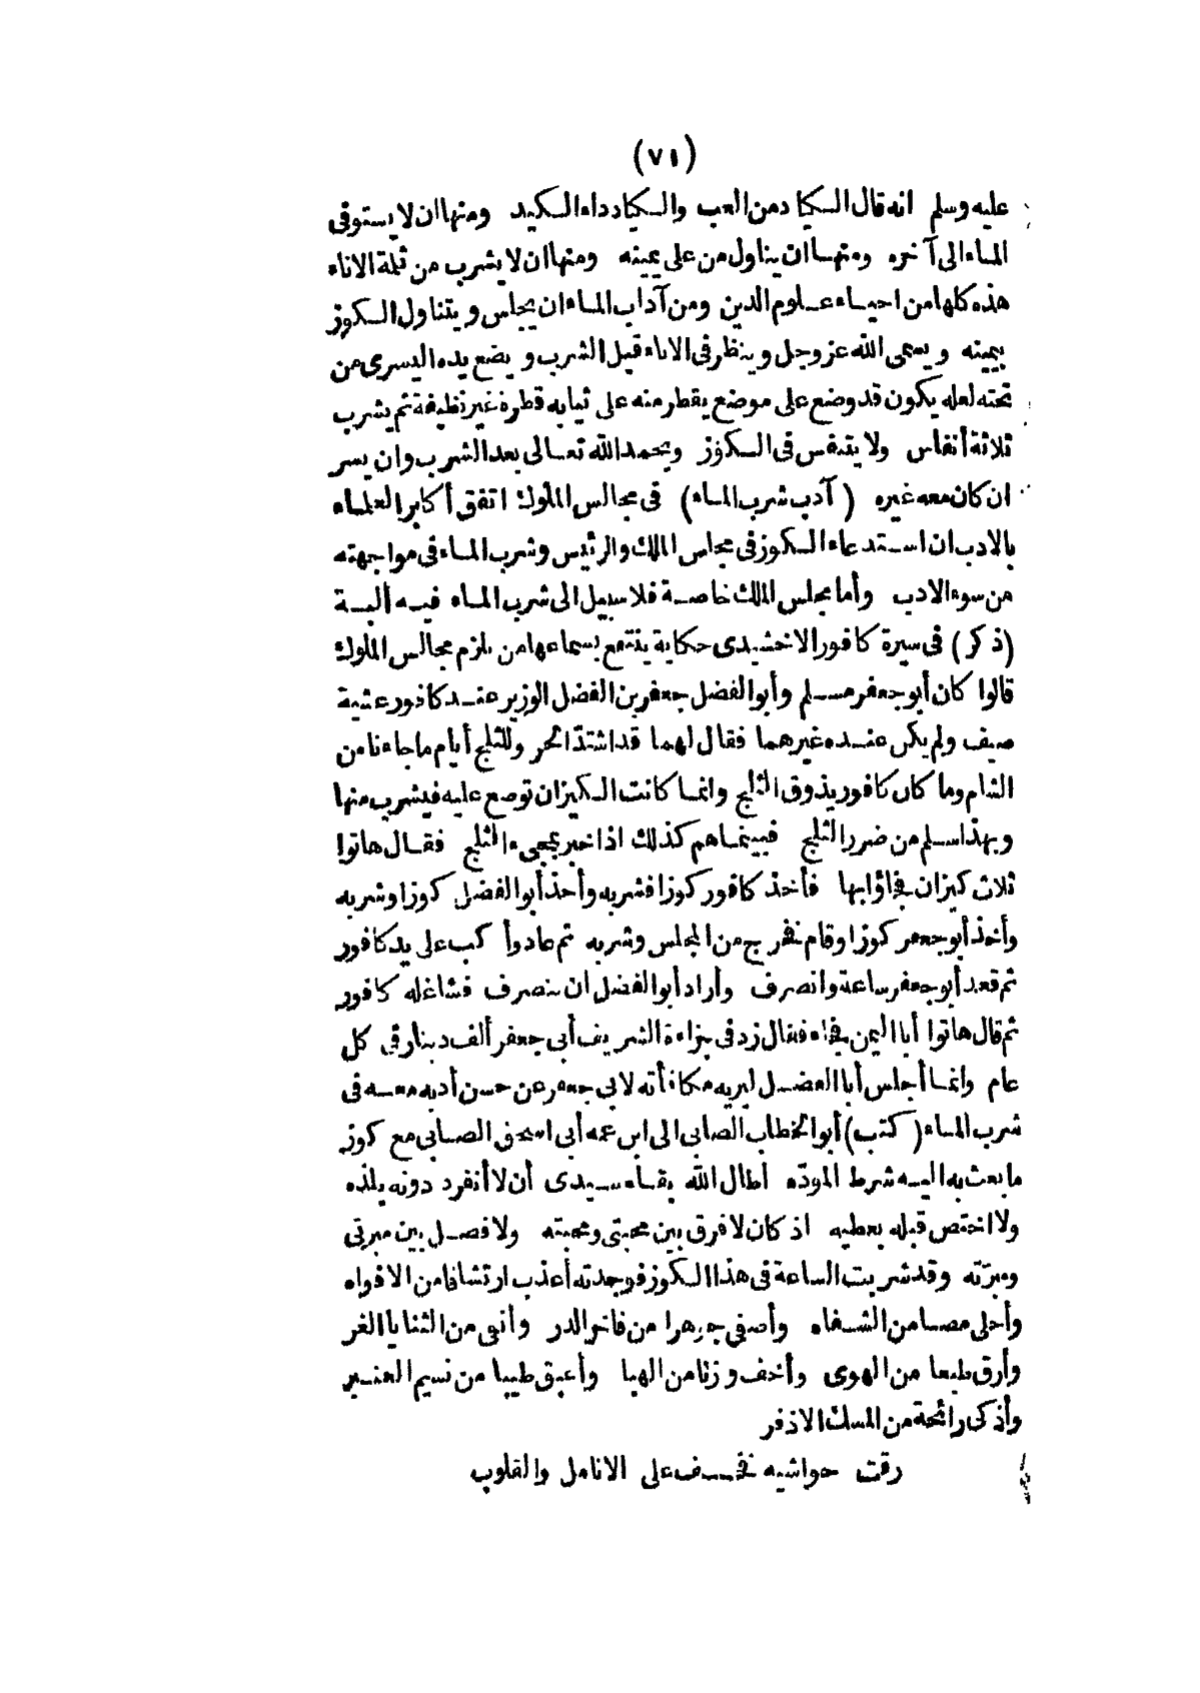 (٧١)
عليه وسلم انه قال الكباد من العب والكباد داء الكبد ومنها ان لا يستوفى
الماء الى آخره ومنها ان يناول من على يمينه ومنها ان لا يشرب من ثلمة الاناء
هذه كلها من احياء علوم الدين ومن آداب الماء ان يجلس ويتناول الكوز
بيمينه ويسمى الله عز وجل وينظر فى الاناء قبل الشرب ويضع يده اليسرى من
تحته لعله يكون قد وضع على موضع يقطر منه على ثيابه قطرة غير نظيفة ثم يشرب
ثلاثة أنفاس ولا يتنفس فى الكوز ويحمد الله تعالى بعد الشرب وان يسر
ان كان معه غيره (آدب شرب الماء) فى مجالس الملوك اتفق أكابر العلماء
بالادب ان استدعاء الكوز فى مجلس الملك والرئيس وشرب الماء فى مواجهته
من سوء الادب وأما مجلس الملك خاصة فلا سبيل الى شرب الماء فيه ألبتة
(ذكر) فى سيرة كافور الاخشيدى حكاية ينتفع بسماعها من يلزم مجالس الملوك
قالوا كان أبو جعفر مسلم وأبو الفضل جعفر بن الفضل الوزير عند كافور عشية
صيف ولم يكن عنده غيرهما فقال لهما قد اشتد الحر وللثلج أيام ما جاءنا من
الشام وما كان كافور يذوق الثلج وانما كانت الكيزان توضع عليه فيشرب منها
وبهذا سلم من ضرر الثلج فبينما هم كذلك اذا خبر بمجىء الثلج فقال هاتوا
ثلاث كيزان فجاؤا بها فأخذ كافور كوزا فشربه وأخذ أبو الفضل كوزا وشربه
وأخذ أبو جعفر كوزا وقام فخرج من المجلس وشربه ثم عاد وأ كب على يد كافور
ثم قعد أبو جعفر ساعة وانصرف وأراد أبو الفضل ان ينصرف فشاغله كافور
ثم قال هاتوا أبا اليمن فجاء فقال زد فى جزاءة الشريف أبى جعفر ألف دينار فى كل
عام وانما أجلس أبا الفضل ليريه مكافأته لابى جعفر عن حسن أدبه معه فى
شرب الماء (كتب) أبو الخطاب الصابى الى ابن عمه أبى اسحق الصابى مع كوز
ما بعث به اليه شرط المودّه أطال الله بقاء سيدى أن لا أنفرد دونه بلذه
ولا اختص قبله بعطيه اذ كان لا فرق بين محبتى ومحبته ولا فصل بين مبرتى
ومبرّته وقد شربت الساعة فى هذا الكوز فوجدته أعذب ارتشافا من الافواه
وأحلى مصا من الشفاه وأصفى جوهرا من فاخر الدر وأنقى من الثنايا الغر
وأرق طبعا من الهوى وأخف وزنا من الهبا وأعبق طيبا من نسيم العنبر
وأذكى رائحة من المسك الاذفر
رقت حواشيه فخف على الانامل والقلوب